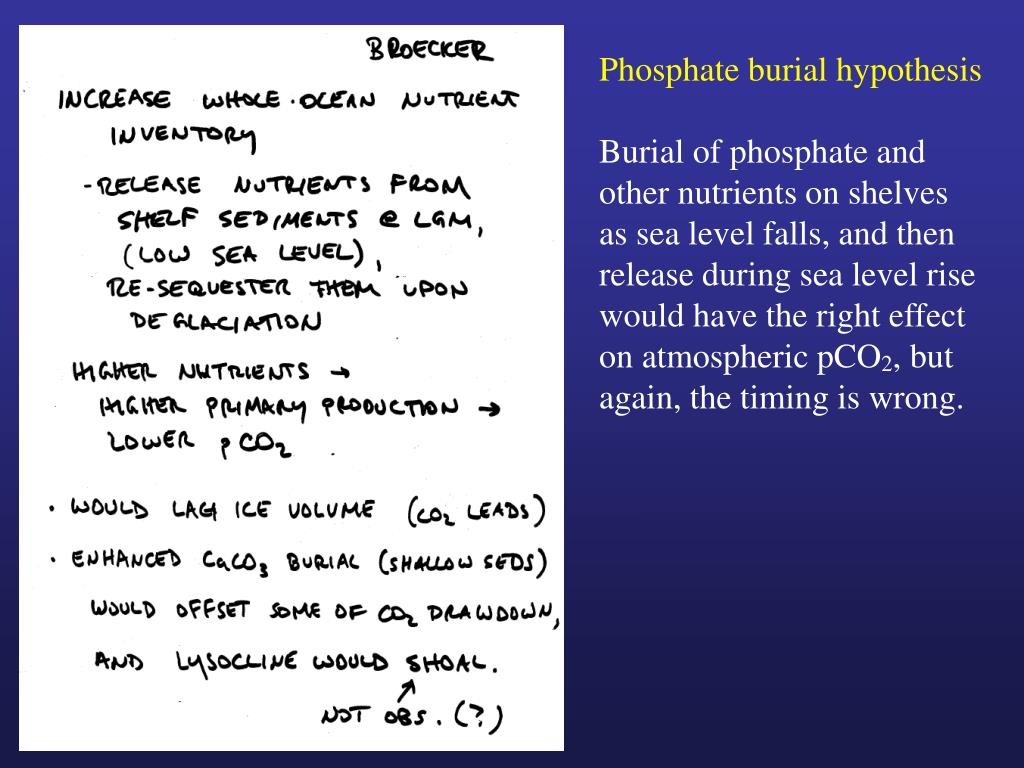 BROECKER
INCREASE WHOLE-OCEAN NUTRIENT
INVENTORY
- RELEASE NUTRIENTS FROM
SHELF SEDIMENTS @ LGM,
(LOW SEA LEVEL),
RE-SEQUESTER THEM UPON
DEGLACIATION
HIGHER NUTRIENTS →
HIGHER PRIMARY PRODUCTION →
LOWER pCO₂
• WOULD LAG ICE VOLUME (CO₂ LEADS)
• ENHANCED CaCO₃ BURIAL (SHALLOW SEDS)
WOULD OFFSET SOME OF CO₂ DRAWDOWN,
AND LYSOCLINE WOULD SHOAL.
↗
NOT OBS. (?)
Phosphate burial hypothesis
Burial of phosphate and
other nutrients on shelves
as sea level falls, and then
release during sea level rise
would have the right effect
on atmospheric pCO₂, but
again, the timing is wrong.